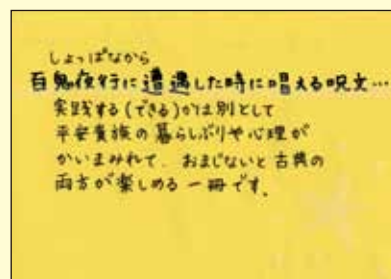 しょっぱなから
百鬼夜行に遭遇した時に唱える呪文…
実践する(できる)かは別として
平安貴族の暮らしぶりや心理が
かいまみれて、おまじないと古典の
両方が楽しめる一冊です。